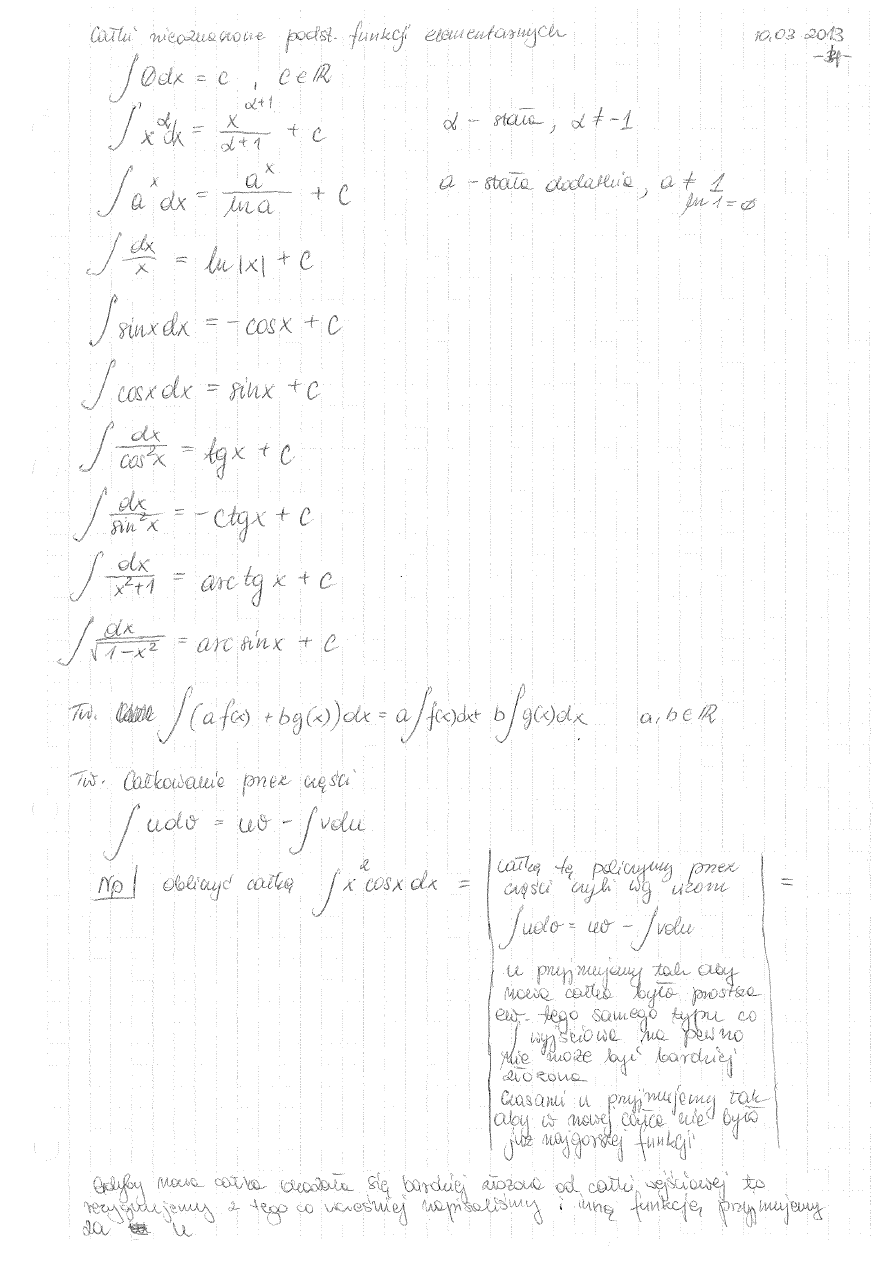 Całki nieoznaczone podst. funkcji elementarnych 10.03 2013
∫ 0dx = c , c ∈ ℝ
∫ x^α dx = x^(α+1)/(α+1) + c α – stała, α ≠ -1
∫ a^x dx = a^x/ln a + c a – stała dodatnia, a ≠ 1
ln 1 = 0
∫ dx/x = ln|x| + c
∫ sinx dx = -cosx + c
∫ cosx dx = sinx + c
∫ dx/cos²x = tgx + c
∫ dx/sin²x = -ctgx + c
∫ dx/(x²+1) = arc tg x + c
∫ dx/√(1-x²) = arc sinx + c
Tw. ∫ (a f(x) + b g(x)) dx = a ∫ f(x)dx + b ∫ g(x)dx a, b ∈ ℝ
Tw. Całkowanie przez części
∫ udv = uv - ∫ vdu
Np obliczyć całkę ∫ x² cosx dx = =
całkę tę policzymy przez
części czyli wg wzoru
∫ udv = uv - ∫ vdu
u przyjmujemy tak aby
nowa całka była prostsza
ew. tego samego typu co
∫ wyjściowa na pewno
nie może być bardziej
złożona
Czasami u przyjmujemy tak
aby w nowej całce nie było
już najgorszej funkcji
Gdyby nowa całka okazała się bardziej złożona od całki wejściowej to
rezygnujemy z tego co wcześniej napisaliśmy i inną funkcję przyjmujemy
za u